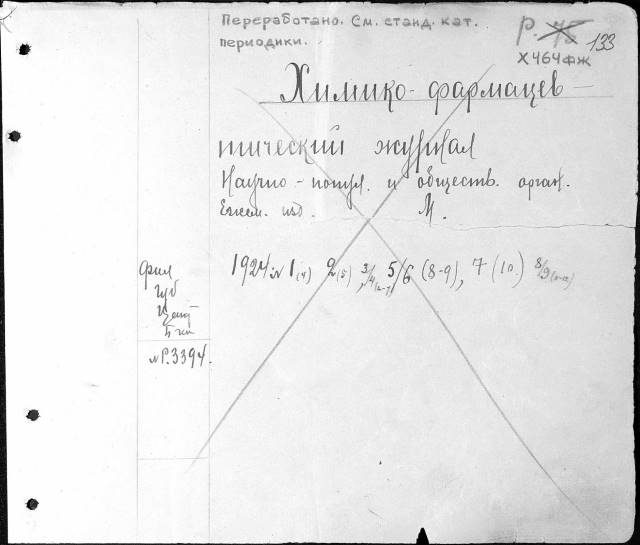 Переработано. См. станд. кат.
периодики.
Р. 45 133
Х464фж
Химико-фармацев-
тический журнал
Научно-попул. и обществ. орган.
Ежем. изд. М.
1924 № 1(4) 2(5), 3/4(6-7), 5/6 (8-9), 7 (10) 8/9(11-12)
Фил
Губ
Цент
Б-ки
№Р.3394.